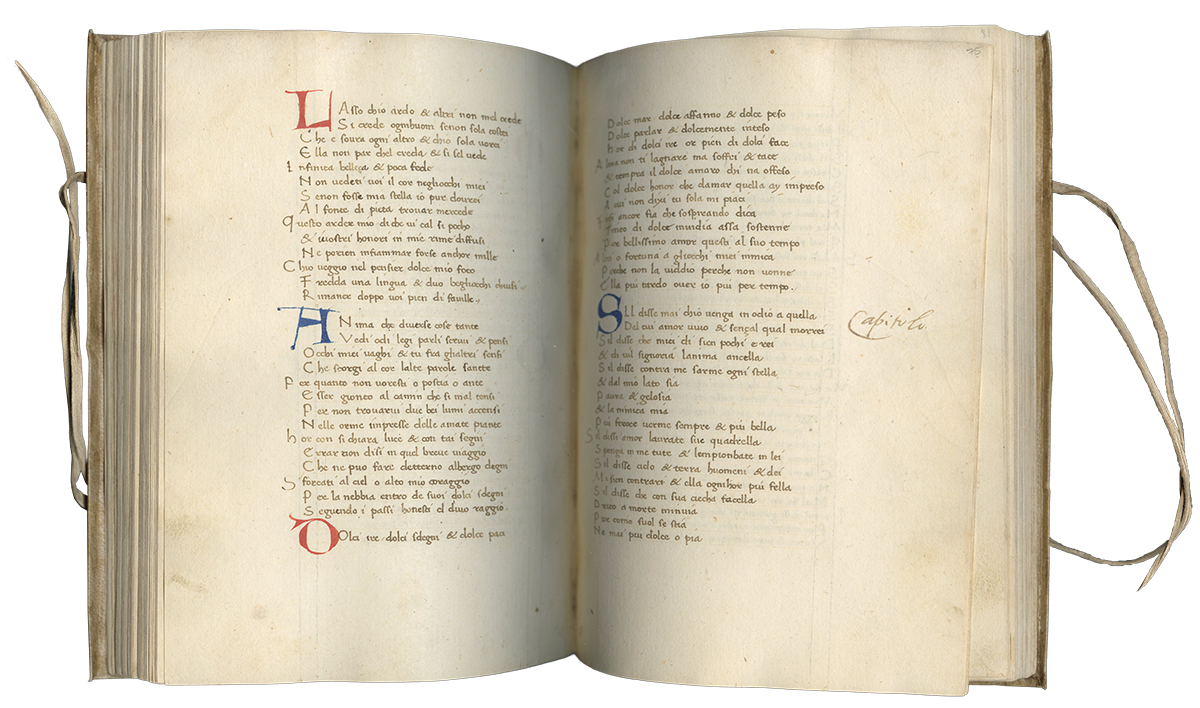 LAsso chio ardo & altri non mel crede
Si crede ognhuom senon sola costei
Che e soura ogni altro & chio sola vorei
Ella non par chel creda & si sel vede
Infinita belleça & poca fede
Non vedeti uoi il cor negliocchi miei
Senon fosse mia stella io pur dourei
Al fonte di pieta trouar mercede
Questo arder mio di che ui cal si pocho
& iuostri honori in mie rime diffusi
Ne porien infiammar forse anchor mille
Chio ueggio nel pensier dolce mio foco
Fredda una lingua & duo begliocchi chiusi
Rimance doppo uoi pien di fauille
ANima che diuerse cose tante
Vedi odi legi parli scriui & pensi
Occhi miei uaghi & tu fra glialtri sensi
Che scorgi al cor lalte parole sante
Per quanto non voresti o poscia o ante
Esser gionto al camin che si mal tensi
Per non trouarui due bei lumi accensi
Nelle orme impresse delle amate piante
hor con si chiara luce & con tai segni
Errar non disi in quel breue uiaggio
Che ne puo fare detterno albergo degni
Sforçati al ciel o alto mio coraggio
Per la nebbia entro de suoi dolci sdegni
Seguendo i passi honesti el diuo raggio
DOlci ire dolci sdegni & dolce paci
36
Dolce mar dolce affanno & dolce peso
Dolce parlar & dolcemente inteso
hor di dolci ire or pien di dolci face
Alma non ti lagnare ma soffri & tace
& tempra il dolce amaro chi na offeso
Col dolce honor che damar quella ay impreso
A cui non dixi tu sola mi piaci
Forsi ancor fia che sospirando dica
Tento di dolce inuidia assa sostenne
Per bellissimo amor questi al suo tempo
Altri o fortuna a gliocchi miei inimica
Perche non la uiddio perche non uenne
Ella piu tardo ouer io piu per tempo.
SIl disse mai chio uenga in odio a quella
Del cui amor uiuo & sença1 qual morrei
Sil disse che miei di sien pochi e rei
& di uil signoria lanima ancella
Sil disse contra me sarme ogni stella
& dal mio lato sia
Paura & gelosia
& la nimica mia
Piu feroce uerme sempre & piu bella
Sil dissi amor laurate sue quadrella
Spenga in me tute & lempionbate in lei
Sil disse cielo & terra huomeni & dei
Mi sien contrari & ella ognihor piu fella
Sil disse che con sua ciecha facella
Drito a morte minuia
Pur como suol se stia
Ne mai piu dolce o pia
Capitolo